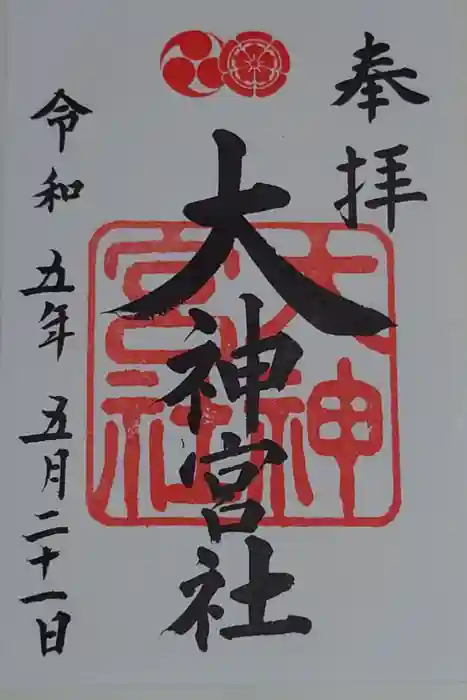 奉拝
大神宮社
大神
宮社
令和五年五月二十一日